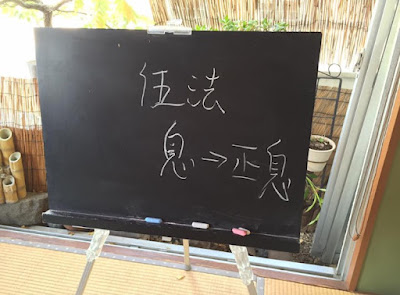 伍法
息→正息